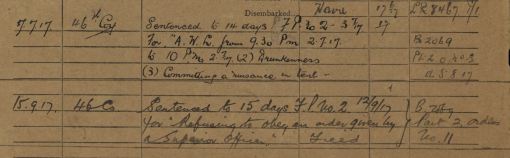 Disembarked Havre 17 LR 8467 1/1
5.7.17 46th Coy Sentenced to 14 days F.P. no 2 - 3/7/17
For "A.W.L. from 9.30 Pm 2.7.17. Bo 2069
to 10 Pm 2/7. (2) Drunkenness Pt 2 O. no 3
(3) Committing a nuisance in tent - d. 5.8.17
15.9.17. 46 Co Sentenced to 15 days F.P. No. 2 12/9/17 B,
for "Refusing to obey an order given by Part 2. orders
a Superior officer." No. 11